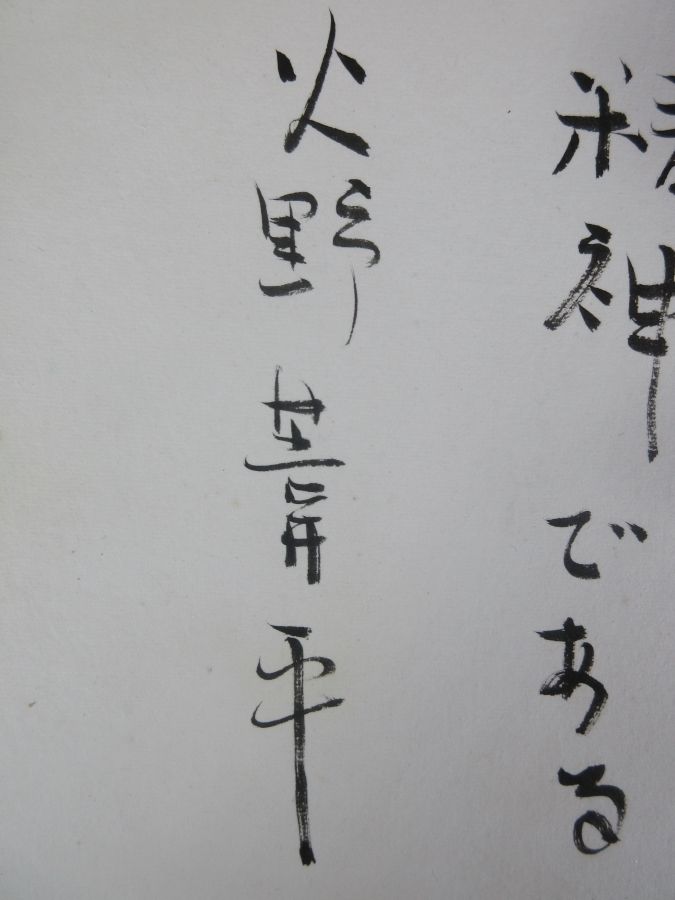 精神である
火野葦平